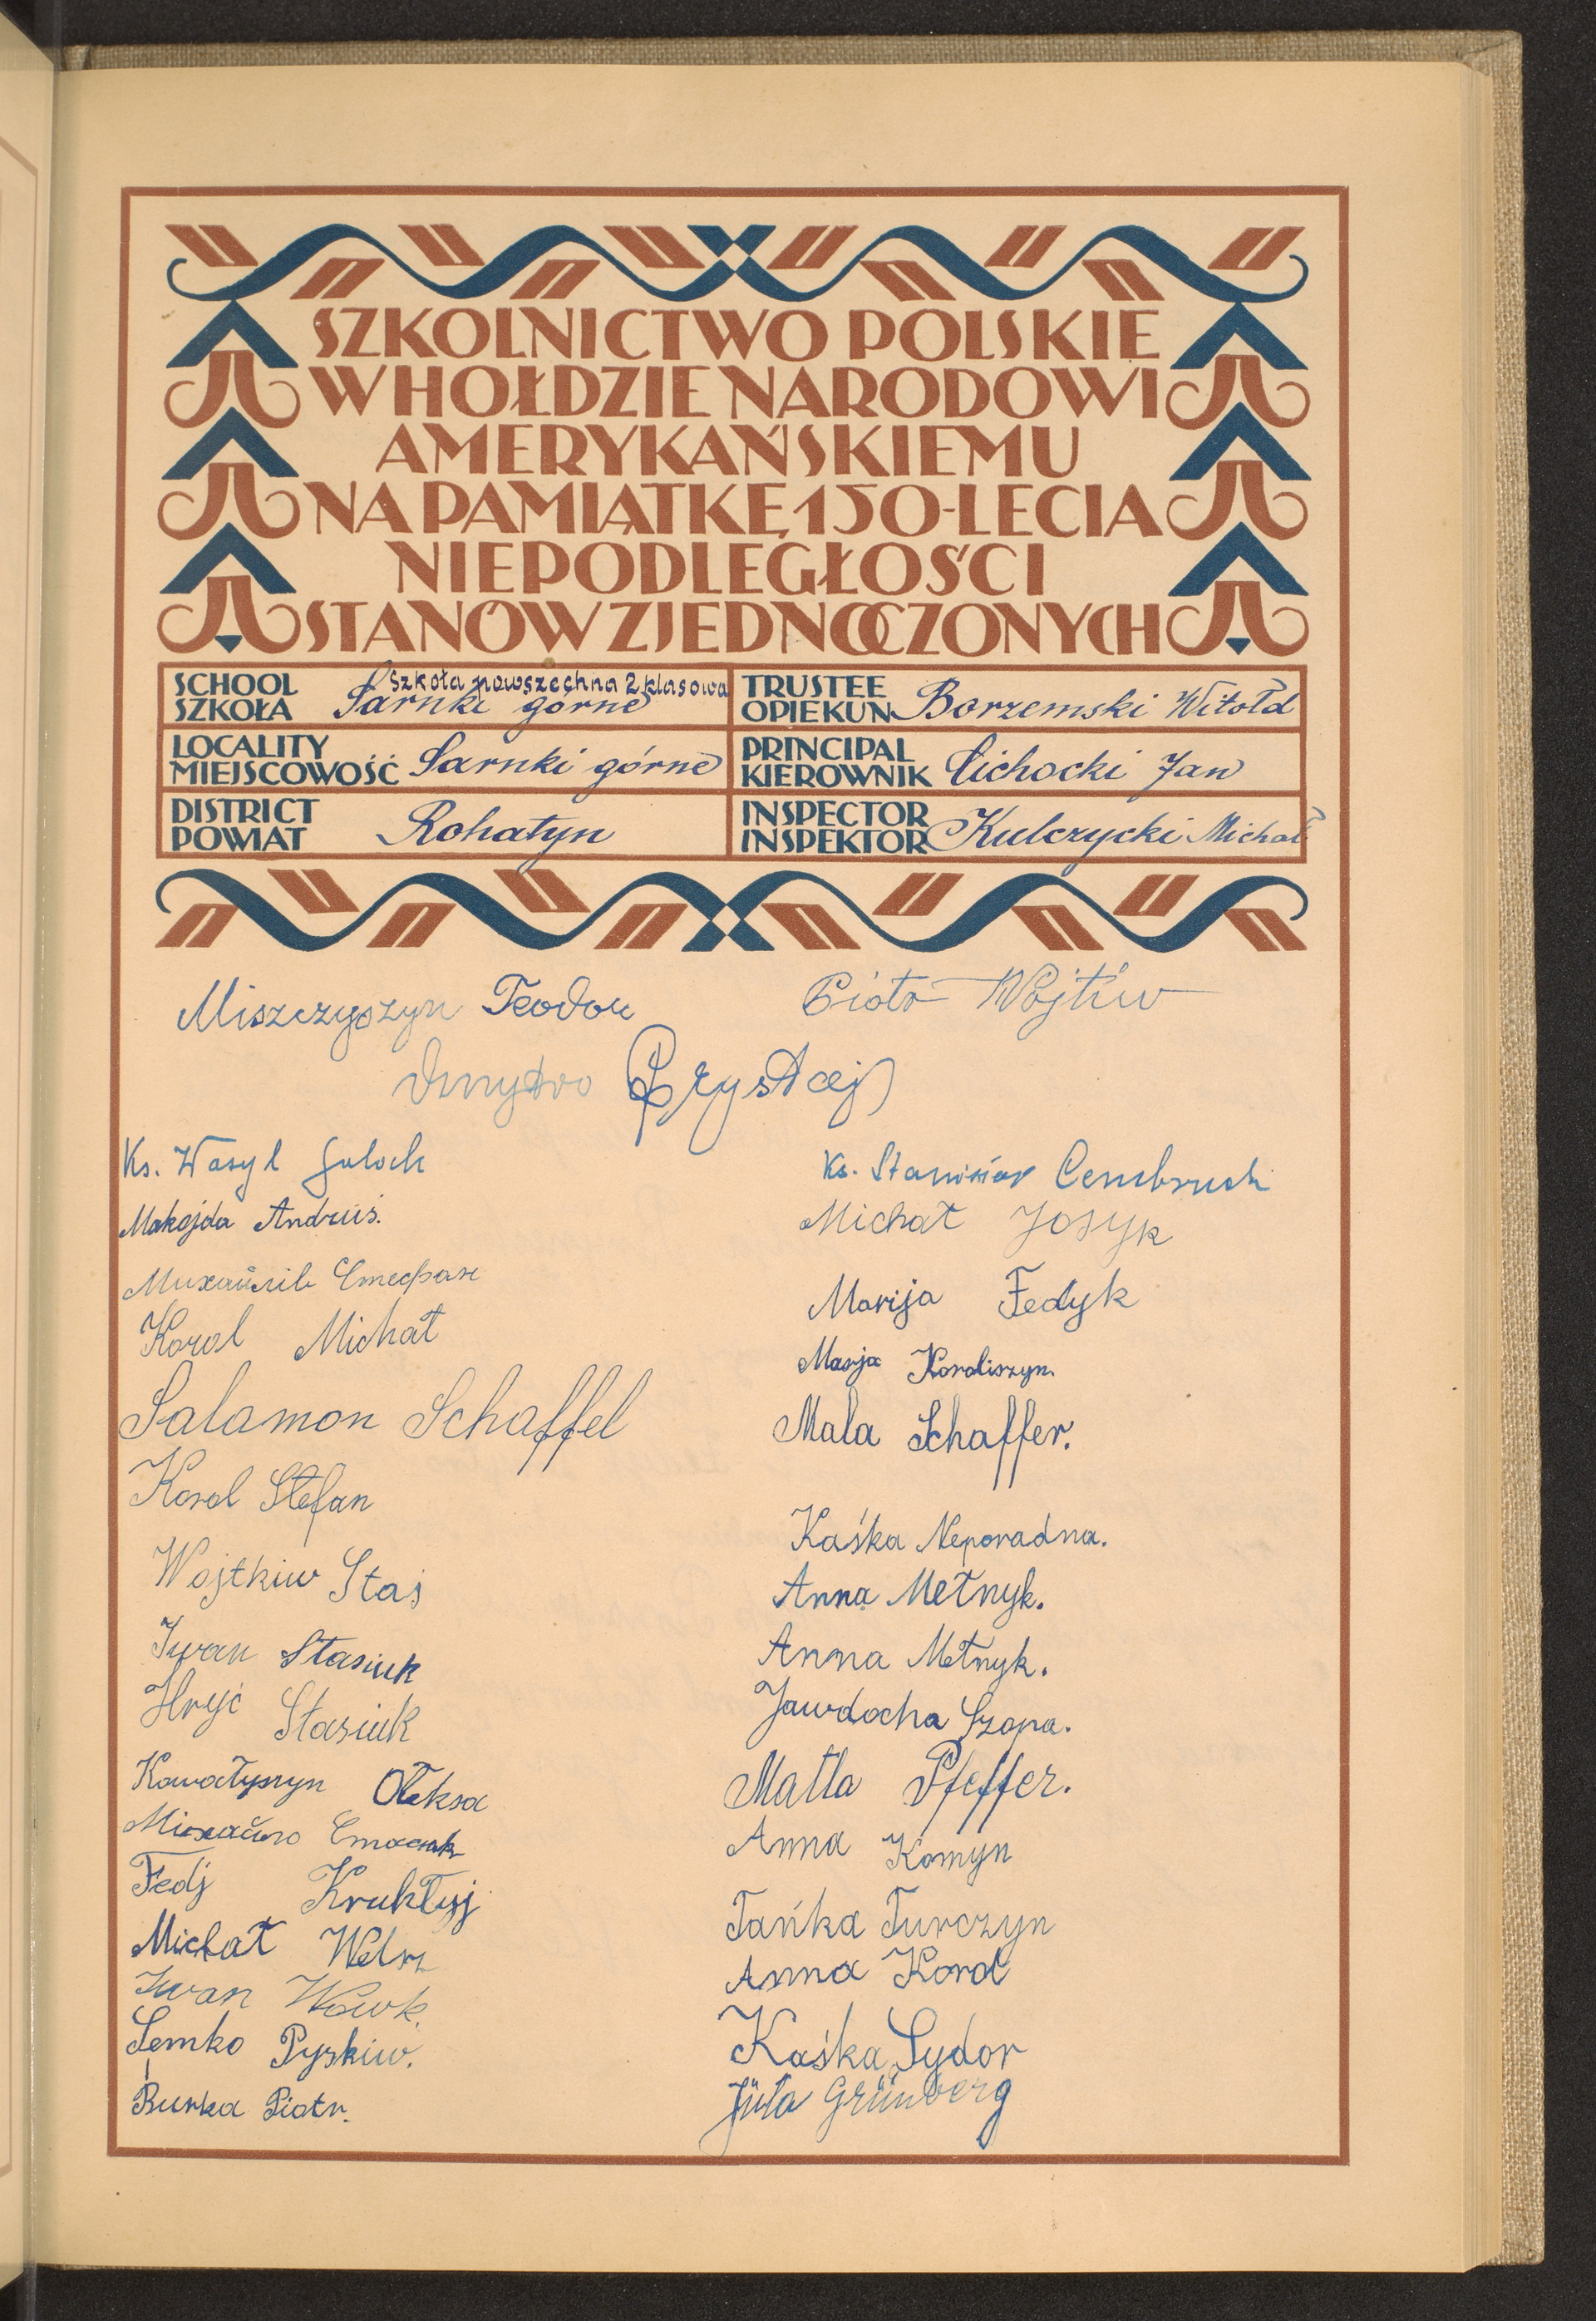 SZKOLNICTWO POLSKIE
W HOŁDZIE NARODOWI
AMERYKAŃSKIEMU
NA PAMIĄTKĘ 150-LECIA
NIEPODLEGŁOŚCI
STANÓW ZJEDNOCZONYCH
SCHOOL
SZKOŁA
Szkoła powszechna 2 klasowa
Sarnki górne
TRUSTEE
OPIEKUN
Borzemski Witołd
LOCALITY
MIEJSCOWOŚĆ
Sarnki górne
PRINCIPAL
KIEROWNIK
Cichocki Jan
DISTRICT
POWIAT
Rohatyn
INSPECTOR
INSPEKTOR
Kulczycki Michał
Miszczyszyn Teodor
Piotr Wojtiw
Dmytro Prystaj
Ks. Wasyl
Makojda Andruś.
Михайлів Стефан
Korol Michał
Salamon Schaffel
Korol Stefan
Wojtkiw Staś
Iwan Stasiuk
Hryć Stasiuk
Kowałyszyn Ołeksa
Михайло Стасюк
Fedj Krukłyj
Michał
Iwan Wowk.
Semko Pyskiw.
Burka Piotr.
Ks. Stanisław
Michał Josyk
Marija Fedyk
Marja Koroliszyn.
Mala Schaffer.
Kaśka Neporadna.
Anna Metnyk.
Anna Metnyk.
Jawdocha Szopa.
Matla Pfeffer.
Anna Komyn
Tańka Turczyn
Anna Korol
Kaśka Sydor
Jüta Grünberg